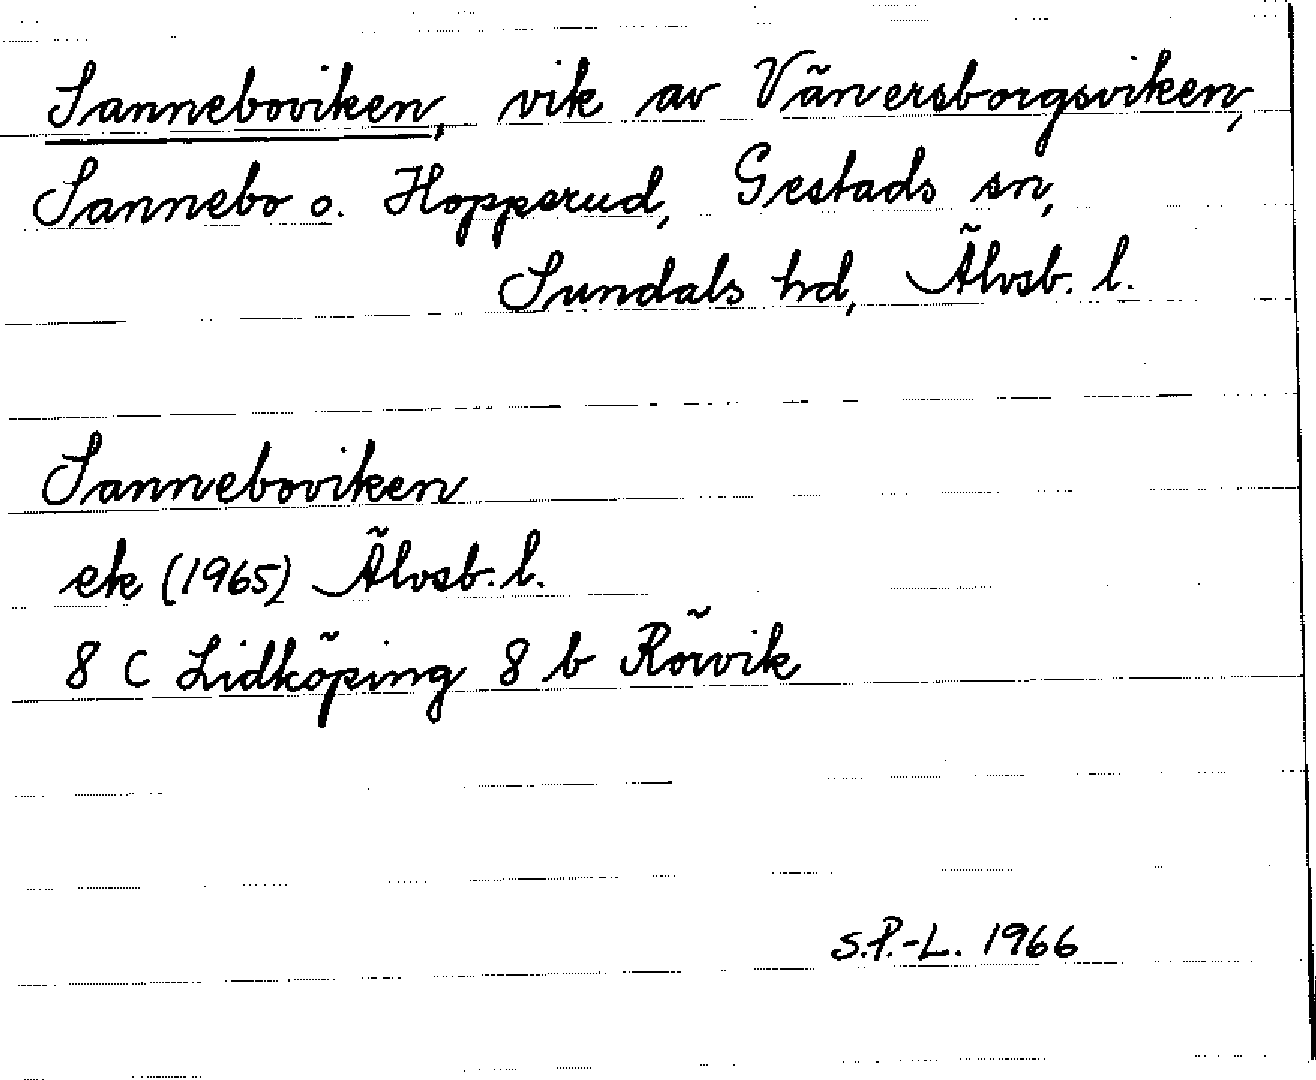 Sanneboviken, vik av Vänersborgsviken,
Sannebo o. Hopperud, Gestads sn,
Sundals hd, Älvsb. l.
Sanneboviken
ek (1965) Älvsb. l.
8 C Lidköping 8 b Rörvik
S.P.-L. 1966